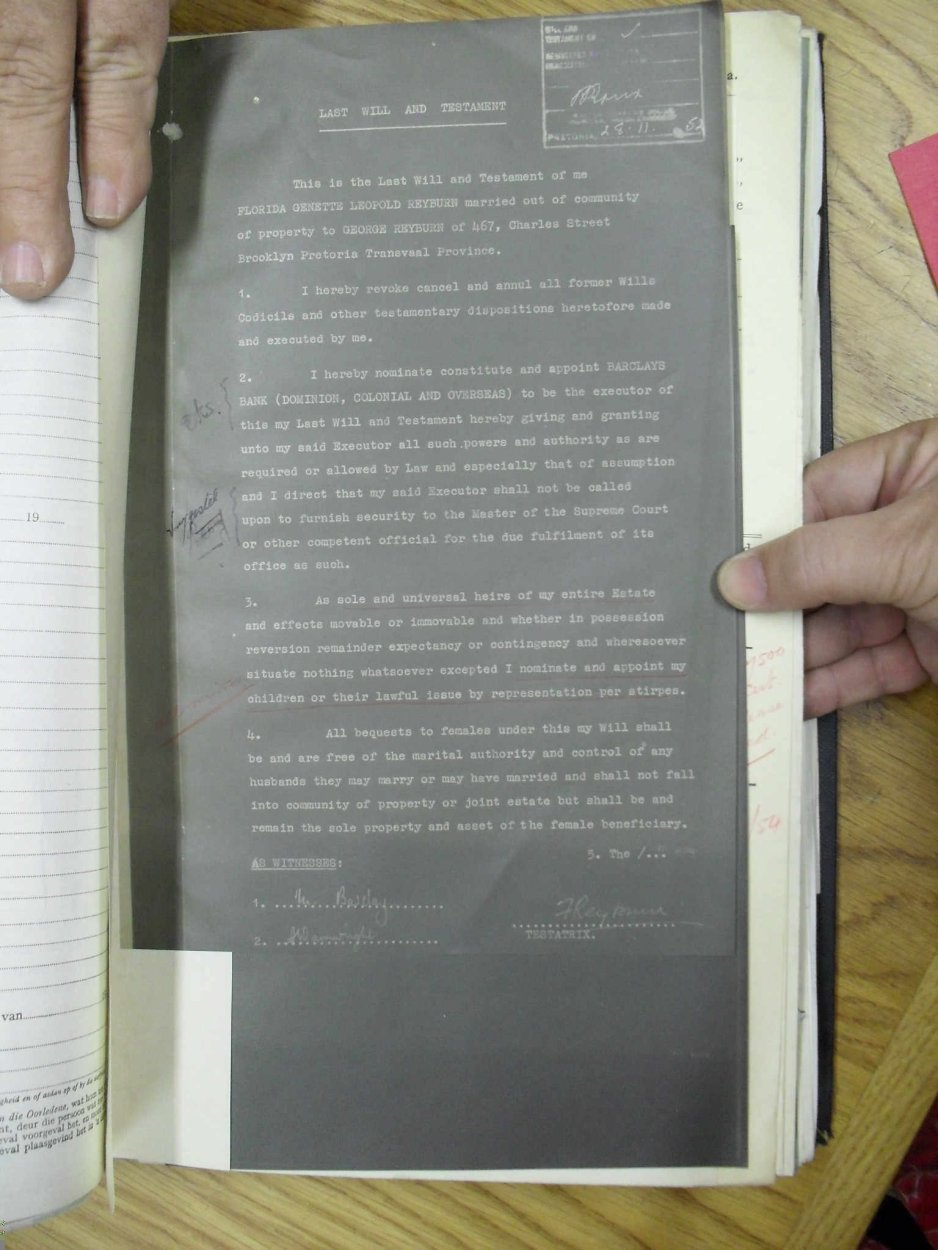 WILL AND
TESTAMENT OF
PRETORIA, 28.11. 53
LAST WILL AND TESTAMENT
This is the Last Will and Testament of me
FLORIDA GENETTE LEOPOLD REYBURN married out of community
of property to GEORGE REYBURN of 467, Charles Street
Brooklyn Pretoria Transvaal Province.
1. I hereby revoke cancel and annul all former Wills
Codicils and other testamentary dispositions heretofore made
and executed by me.
2. I hereby nominate constitute and appoint BARCLAYS
BANK (DOMINION, COLONIAL AND OVERSEAS) to be the executor of
this my Last Will and Testament hereby giving and granting
unto my said Executor all such powers and authority as are
required or allowed by Law and especially that of assumption
and I direct that my said Executor shall not be called
upon to furnish security to the Master of the Supreme Court
or other competent official for the due fulfilment of its
office as such.
3. As sole and universal heirs of my entire Estate
and effects movable or immovable and whether in possession
reversion remainder expectancy or contingency and wheresoever
situate nothing whatsoever excepted I nominate and appoint my
children or their lawful issue by representation per stirpes.
4. All bequests to females under this my Will shall
be and are free of the marital authority and control of any
husbands they may marry or may have married and shall not fall
into community of property or joint estate but shall be and
remain the sole property and asset of the female beneficiary.
5. The /...
AS WITNESSES:
1. ... Barclay........
2. ....................
FReyburn
TESTATRIX.
Eks.
19
van
die Oorledene, wat hom
deur die persoon wat
voorgeval het, en
plaasgevind het
a.
e
7500
/54